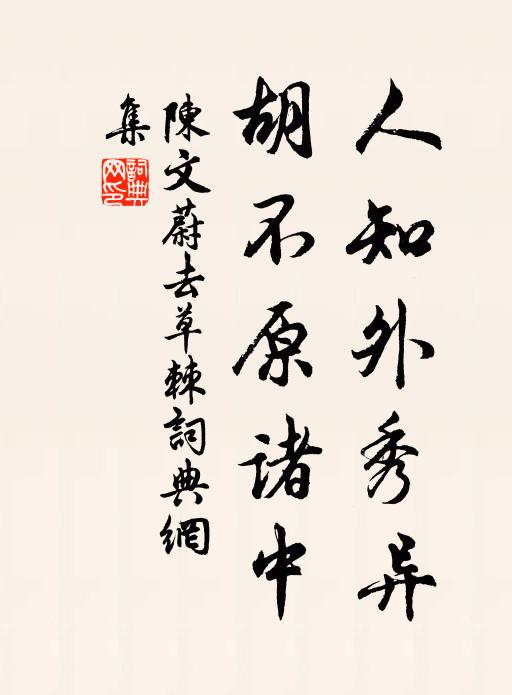 人知外秀异
胡不原诸中
陳文蔚去草棘詞典網
集
詞典網印